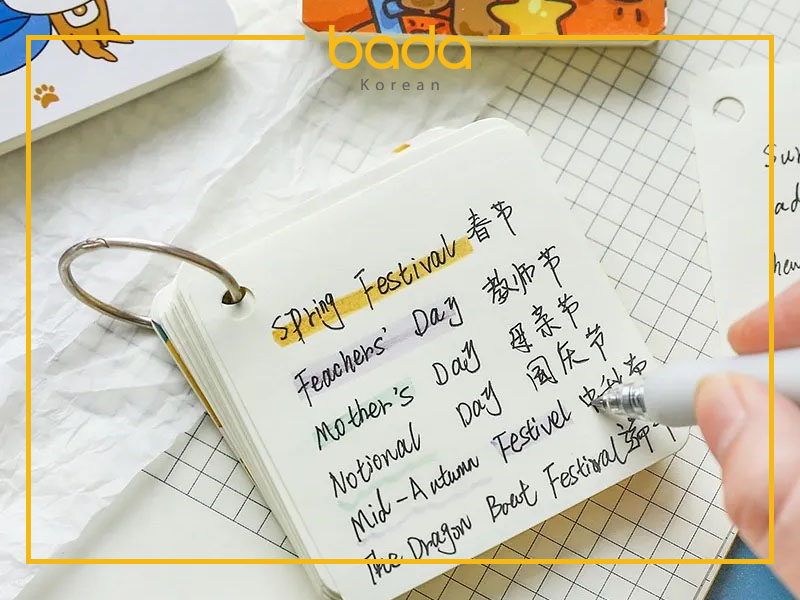 bada
Korean
Spring Festival 春节
Teachers' Day 教师节
Mother's Day 母亲节
National Day 国庆节
Mid-Autumn Festivel 中秋节
The Dragon Boat Festival